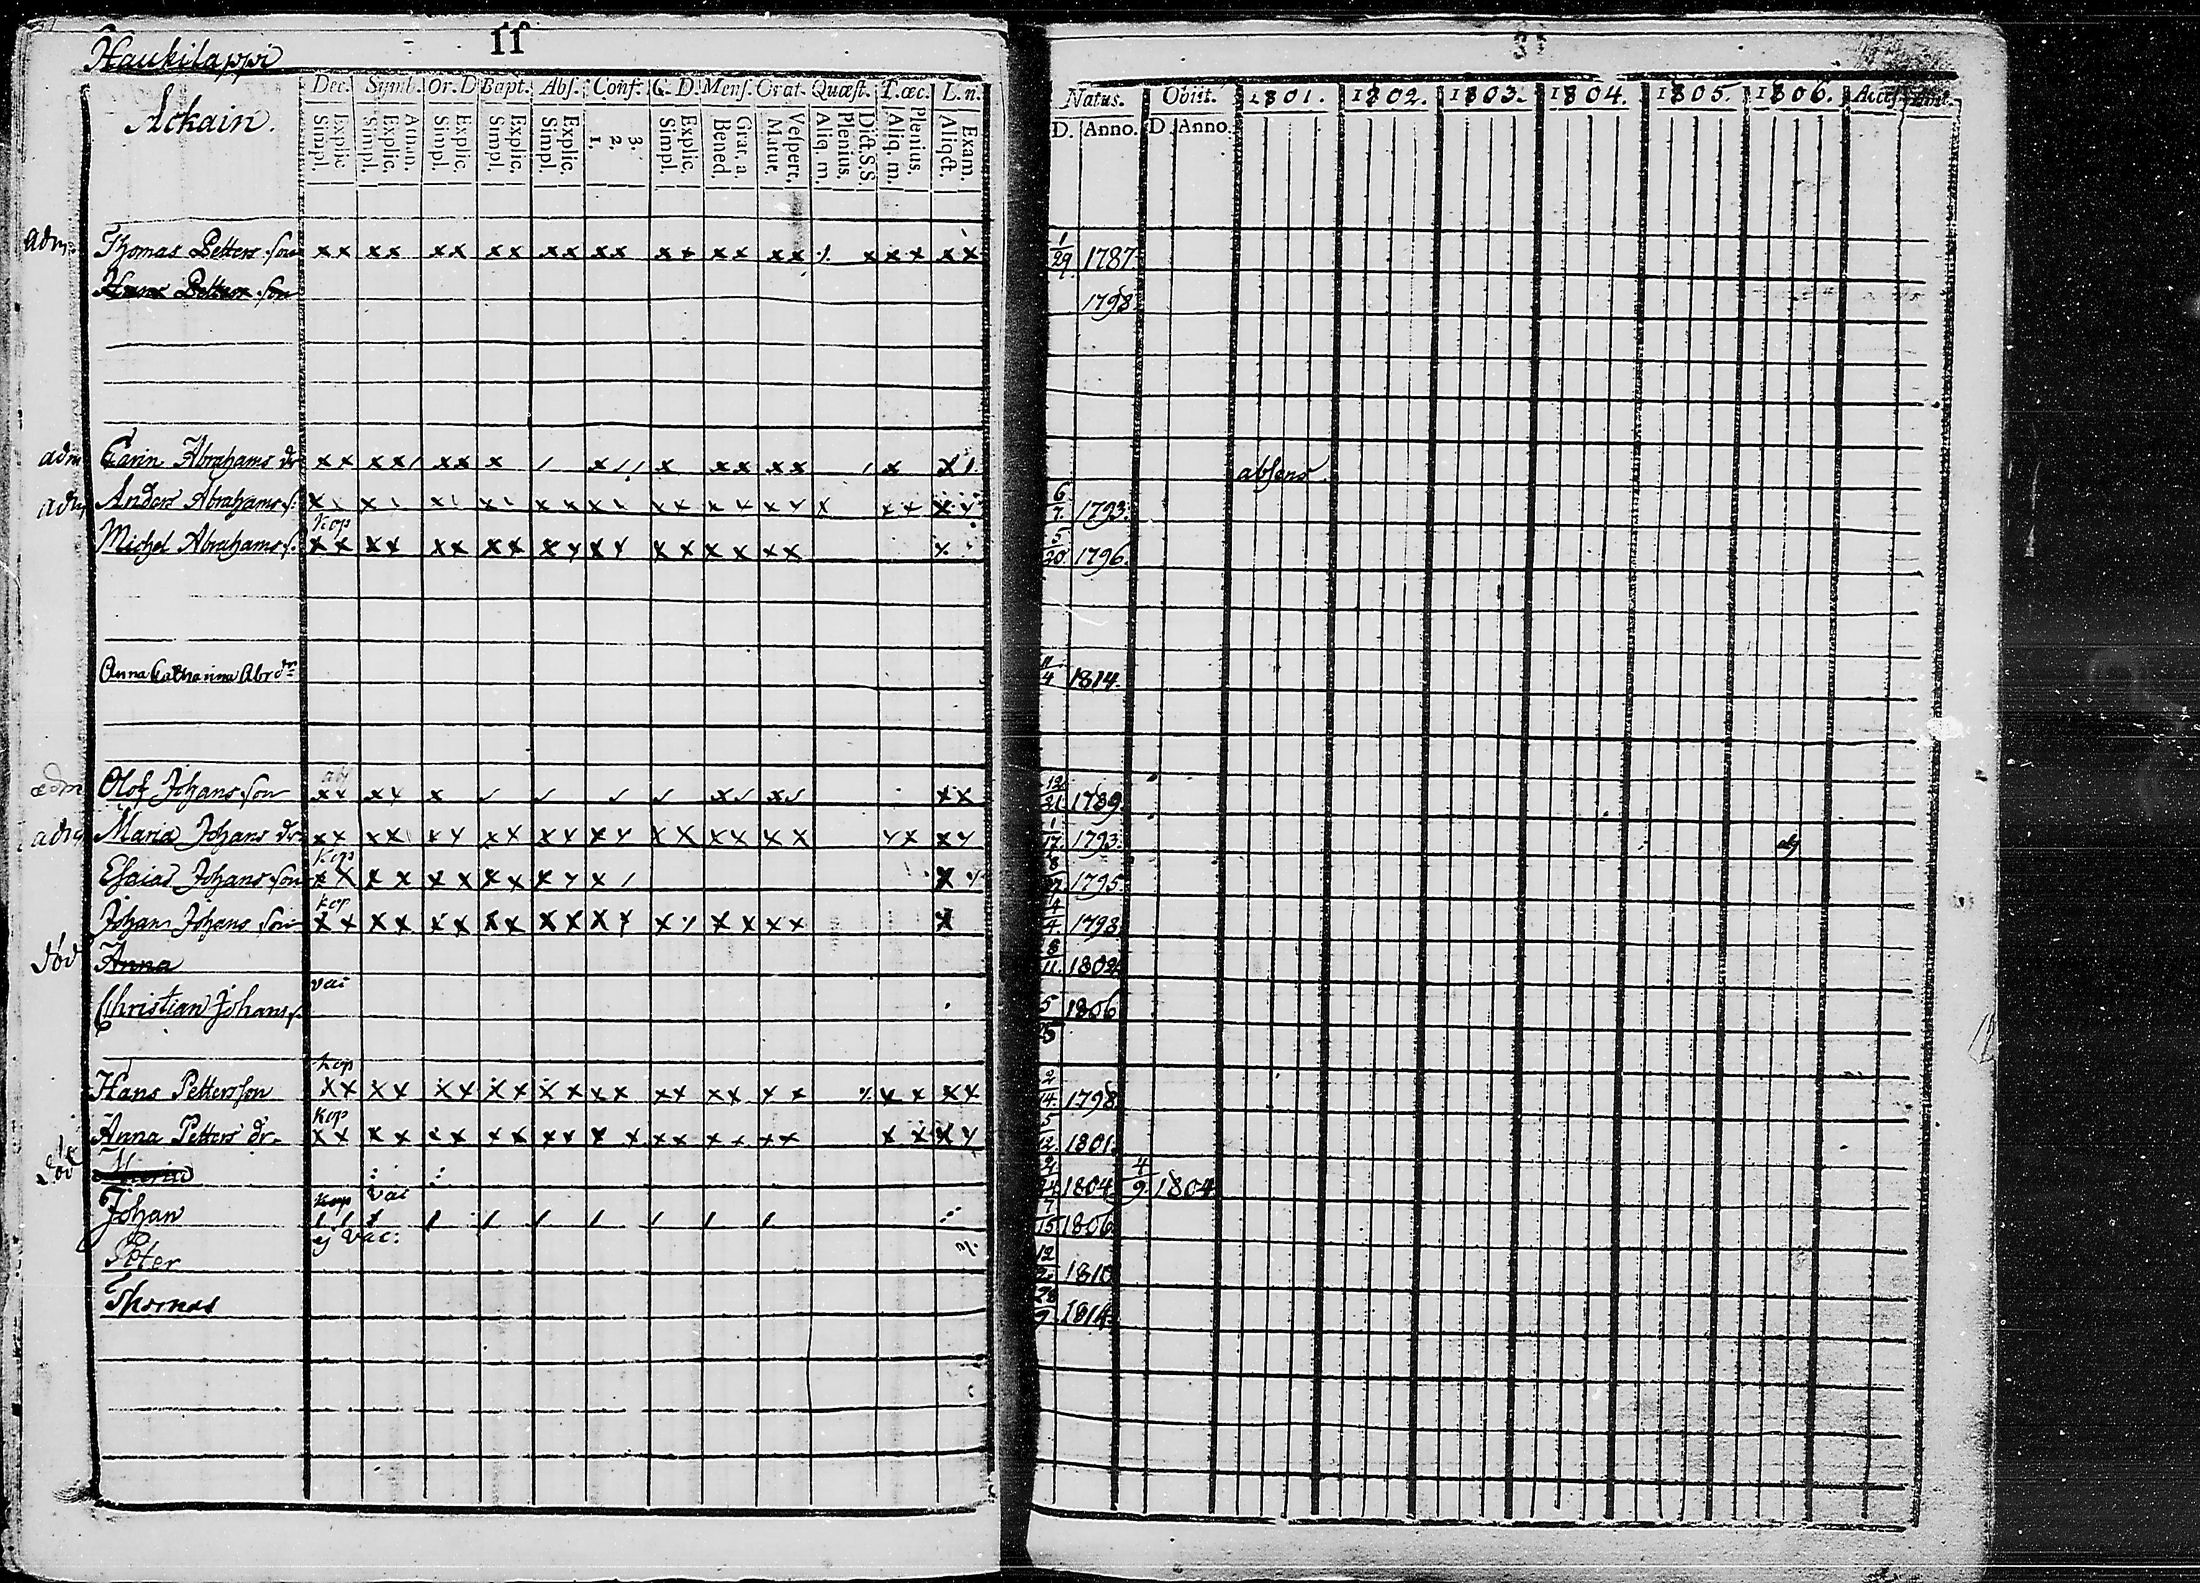 Haukilappi 11
Ackain.
Dec. Symb. Or. D Bapt. Abs. Conf. C. D. Mens. Orat. Quæst. T. œc. L. n.
Explic. Simpl. Athan. Explic. Simpl. Explic. Simpl. Explic. Simpl. Explic. Simpl. 3. 2. 1. Explic. Simpl. Grat. a. Bened. Vespert. Matut. Dict. S. S. Plenius. Aliq. m. Plenius. Aliq. m. Exam. Aliqst.
Natus. Obiit. 1801. 1802. 1803. 1804. 1805. 1806. Acces.
D. Anno. D. Anno.
adm. Thomas Petters son xx xx xx xx xx xx xx xx xx 1/29 1787.
Hans Petters son 1798.
adm Carin Abrahams dr absens
adm Anders Abrahams s. 6/7. 1793.
kop
Michel Abrahams s. 5/20. 1796.
Anna Catharina Abr dr 11/4 1814.
adm Olof Johans son 12/21. 1789.
adm Maria Johans dr 1/17. 1793.
kop
Esaias Johans son 8/27. 1795.
kop
Johan Johans son 4/4. 1798.
död Anna 8/11. 1802.
vac
Christian Johans s. 5/25 1806
kop
Hans Petters son 2/14. 1798
kop
Anna Petters dr. 5/12. 1801.
död 1804 4/9. 1804
kop vac
Johan 7/15 1806
ej vac:
Peter 12/2. 1810
Thomas 28/9. 1814.